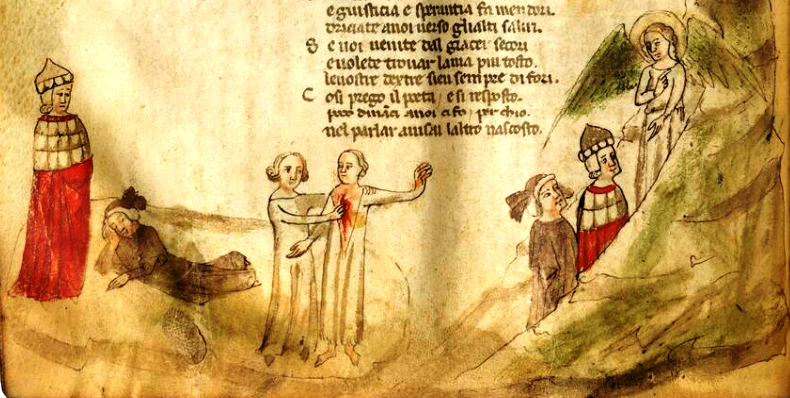 e guisticia e sperantia fa men dori.
driciate anoi uerso glialti saliri.
S e uoi uenite dal giacer securi
euolete trouar lauia piu tosto.
leuostre dextre sien sempre di fori.
C osi prego il poeta / e si resposto.
poco dinãci anoi ci fo / per chio.
nel parlar auisai laltro nascosto.